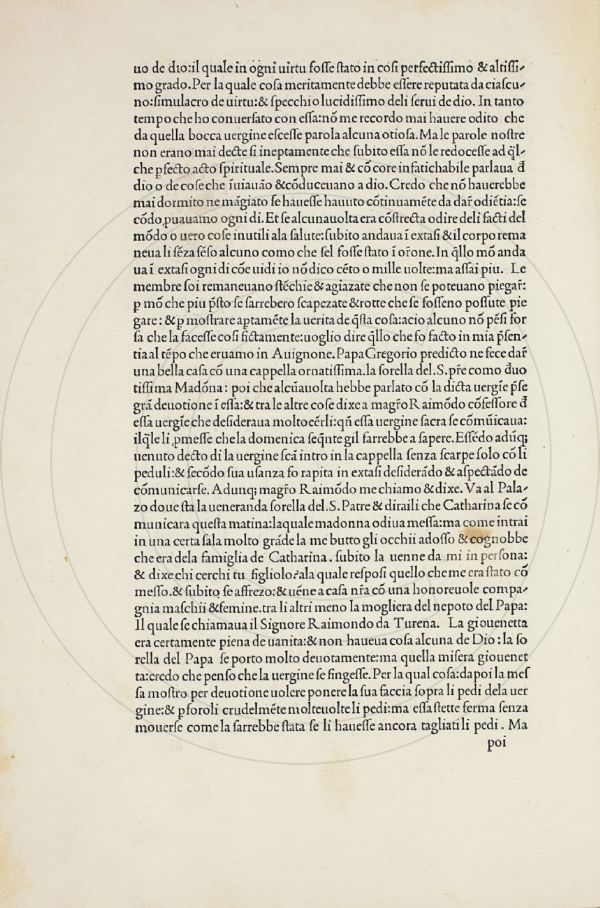 uo de dio:il quale in ogni uirtu foſſe ſtato in coſi perfectiſſimo & altiſſi-
mo grado.Per la quale coſa meritamente debbe eſſere reputata da ciaſcu-
no:ſimulacro de uirtu:& ſpecchio lucidiſſimo deli ſerui de dio. In tanto
tempo che ho conuerſato con eſſa:nõ me recordo mai hauere odito che
da quella bocca uergine eſceſſe parola alcuna otioſa. Ma le parole noſtre
non erano mai decte ſi ineptamente che ſubito eſſa nõ le redoceſſe ad q̃l-
che ꝓfecto acto ſpirituale.Sempre mai & cõ core infatichabile parlaua đ
dio o de coſe che ĩuiauão & cõduceuano a dio. Credo che nõ hauerebbe
mai dormito ne mãgiato ſe haueſſe hauuto cõtinuamẽte da dar̃ odiẽtia:ſe
cõdo,puauamo ogni di. Et ſe alcuna uolta era cõſtrecta odire deli facti del
mõdo o uero coſe inutili ala ſalute:ſubito andaua ĩ extaſi &il corpo rema
neua li ſẽza ſẽſo alcuno como che ſel foſſe ſtato ĩ or̃one. In q̃llo mõ anda
ua ĩ extaſi ogni di cõe uidi io nõ dico cẽto o mille uolte:ma aſſai piu. Le
membre ſoi remaneuano ſtẽchie & agiazate che non ſe poteuano piegar̃:
ꝑ mõ che piu p̃ſto ſe ſarrebero ſcapezate &rotte che ſe foſſeno poſſute pie
gare: & ꝑ moſtrare aptamẽte la uerita de q̃ſta coſa:acio alcuno nõ pẽſi for
ſa che la faceſſe coſi fictamente:uoglio dire q̃llo che fo facto in mia p̃ſen-
tia al tẽpo che eruamo in Auignone. Papa Gregorio predicto ne fece dar̃
una bella caſa cõ una cappella ornatiſſima. la ſorella del .S. p̃re como đuo
tiſſima Madõna: poi che alcũa uoſta hebbe parlato cõ la dicta uergĩe p̃ſe
grã deuotione ĩ eſſa: & tra le altre coſe dixe a magr̃o Raimõdo cõfeſſore đ
eſſa uergĩe che deſideraua molto eẽrli:qñ eſſa uergine ſacra ſe comũicaua:
ilq̃le li ꝓmeſſe che la domenica ſeq̃nte gil farrebbe a ſapere. Eſſẽdo adũq;
uenuto decto di la uergine ſcã intro in la cappella ſenza ſcarpe ſolo cõ li
peduli:& ſecõdo ſua uſanza fo rapita in extaſi deſiderãdo & aſpectãdo de
cõmunicarſe. Adunq; magr̃o Raimõdo me chiamo & dixe. Va al Pala-
zo doue ſta la ueneranda ſorella del .S. Patre & diraili che Catharina ſe cõ
municara queſta matina:laquale madonna odiua meſſa:ma come intrai
in una certa ſala molto grãde la me butto gli occhii adoſſo & cognobbe
che era dela famiglia de Catharina. ſubito la uenne da mi in perſona:
& dixe chi cerchi tu figliolo?ala quale reſpoſi quello che me era ſtato cõ
meſſo. & ſubito ſe affrezo:& uẽne a caſa nr̃a cõ una honoreuole compa-
gnia maſchii &femine.tra li altri meno la mogliera del nepoto del Papa:
Il quale ſe chiamaua il Signore Raimondo da Turena. La giouenetta
era certamente piena de uanita:& non haueua coſa alcuna de Dio : la ſo
rella del Papa ſe porto molto deuotamente:ma quella miſera giouenet
ta:credo che penſo che la uergine ſe fingeſſe. Per la qual coſa:dapoi la meſ
ſa moſtro per deuotione uolere ponere la ſua faccia ſopra li pedi dela uer
gine:& ꝑforoli crudelmẽte molte uolte li pedi:ma eſſa ſtette ferma ſenza
mouerſe come la ſarrebbe ſtata ſe li haueſſe ancora tagliati li pedi . Ma
poi